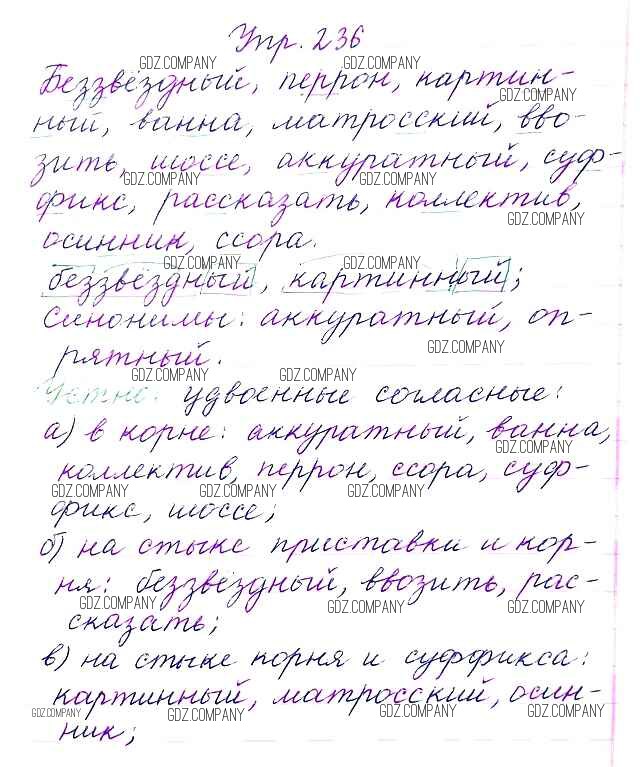 Упр. 236
GDZ.COMPANY GDZ.COMPANY
Беззвёздный, перрон, картин-
GDZ.COMPANY
ный, ванна, матросский, вво-
зить, шоссе, аккуратный, суф-
GDZ.COMPANY GDZ.COMPANY
фикс, рассказать, коллектив,
GDZ.COMPANY
осинник, ссора.
GDZ.COMPANY GDZ.COMPANY
беззвёздный, картинный;
Синонимы: аккуратный, оп-
GDZ.COMPANY
рятный.
GDZ.COMPANY GDZ.COMPANY
Устно: удвоенные согласные:
а) в корне: аккуратный, ванна,
GDZ.COMPANY
коллектив, перрон, ссора, суф-
GDZ.COMPANY GDZ.COMPANY GDZ.COMPANY
фикс, шоссе;
б) на стыке приставки и кор-
ня: беззвёздный, ввозить, рас-
GDZ.COMPANY GDZ.COMPANY GDZ.COMPANY
сказать;
в) на стыке корня и суффикса:
картинный, матросский, осин-
GDZ.COMPANY GDZ.COMPANY GDZ.COMPANY GDZ.COMPANY
ник;